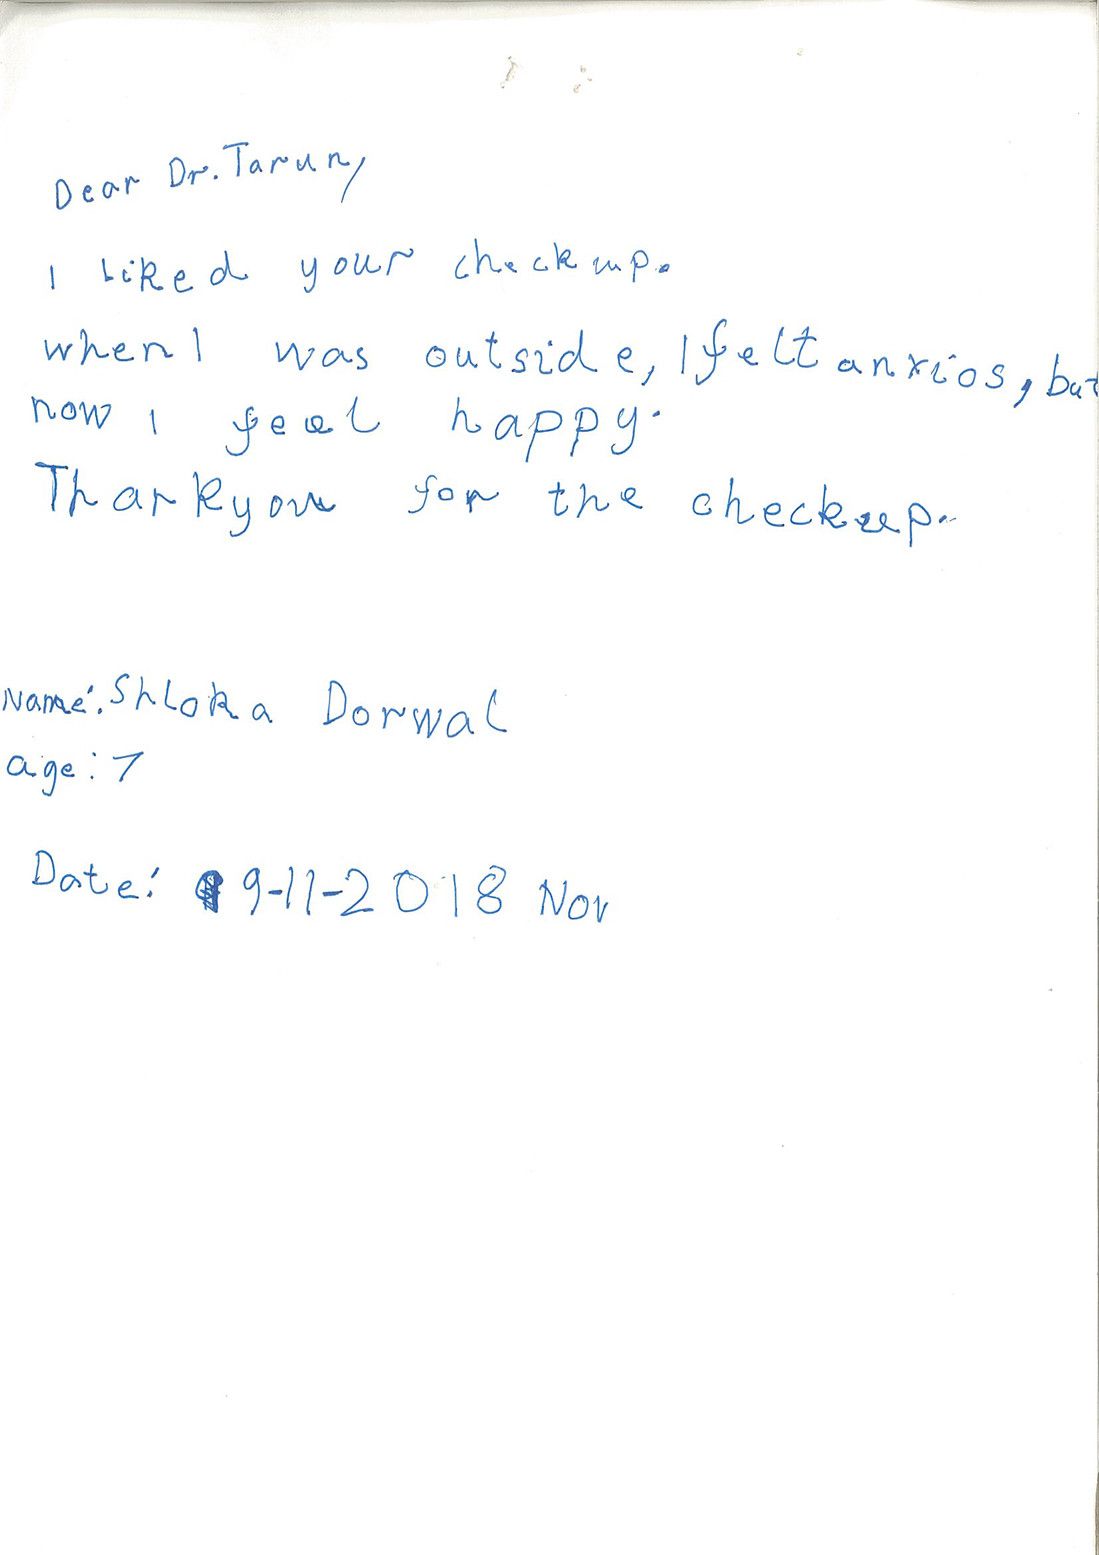 Dear Dr. Tarun,
I liked your checkup.
when I was outside, I felt anxios, but
now I feel happy.
Thankyou for the checkup.
Name: Shloka Dorwal
age: 7
Date: 9-11-2018 Nov